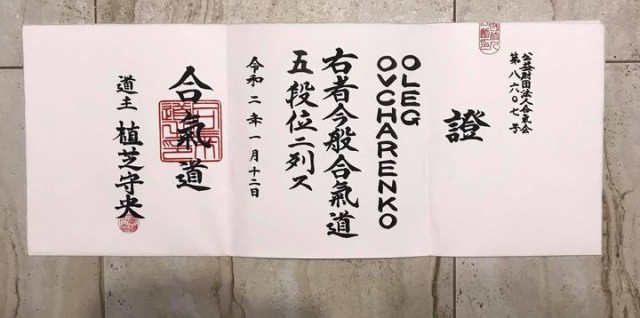 公益財団法人合氣会
第八六〇七号
證
OLEG
OVCHARENKO
右者今般合氣道
五段位ニ列ス
令和二年一月十二日
合氣道
道主 植芝守央